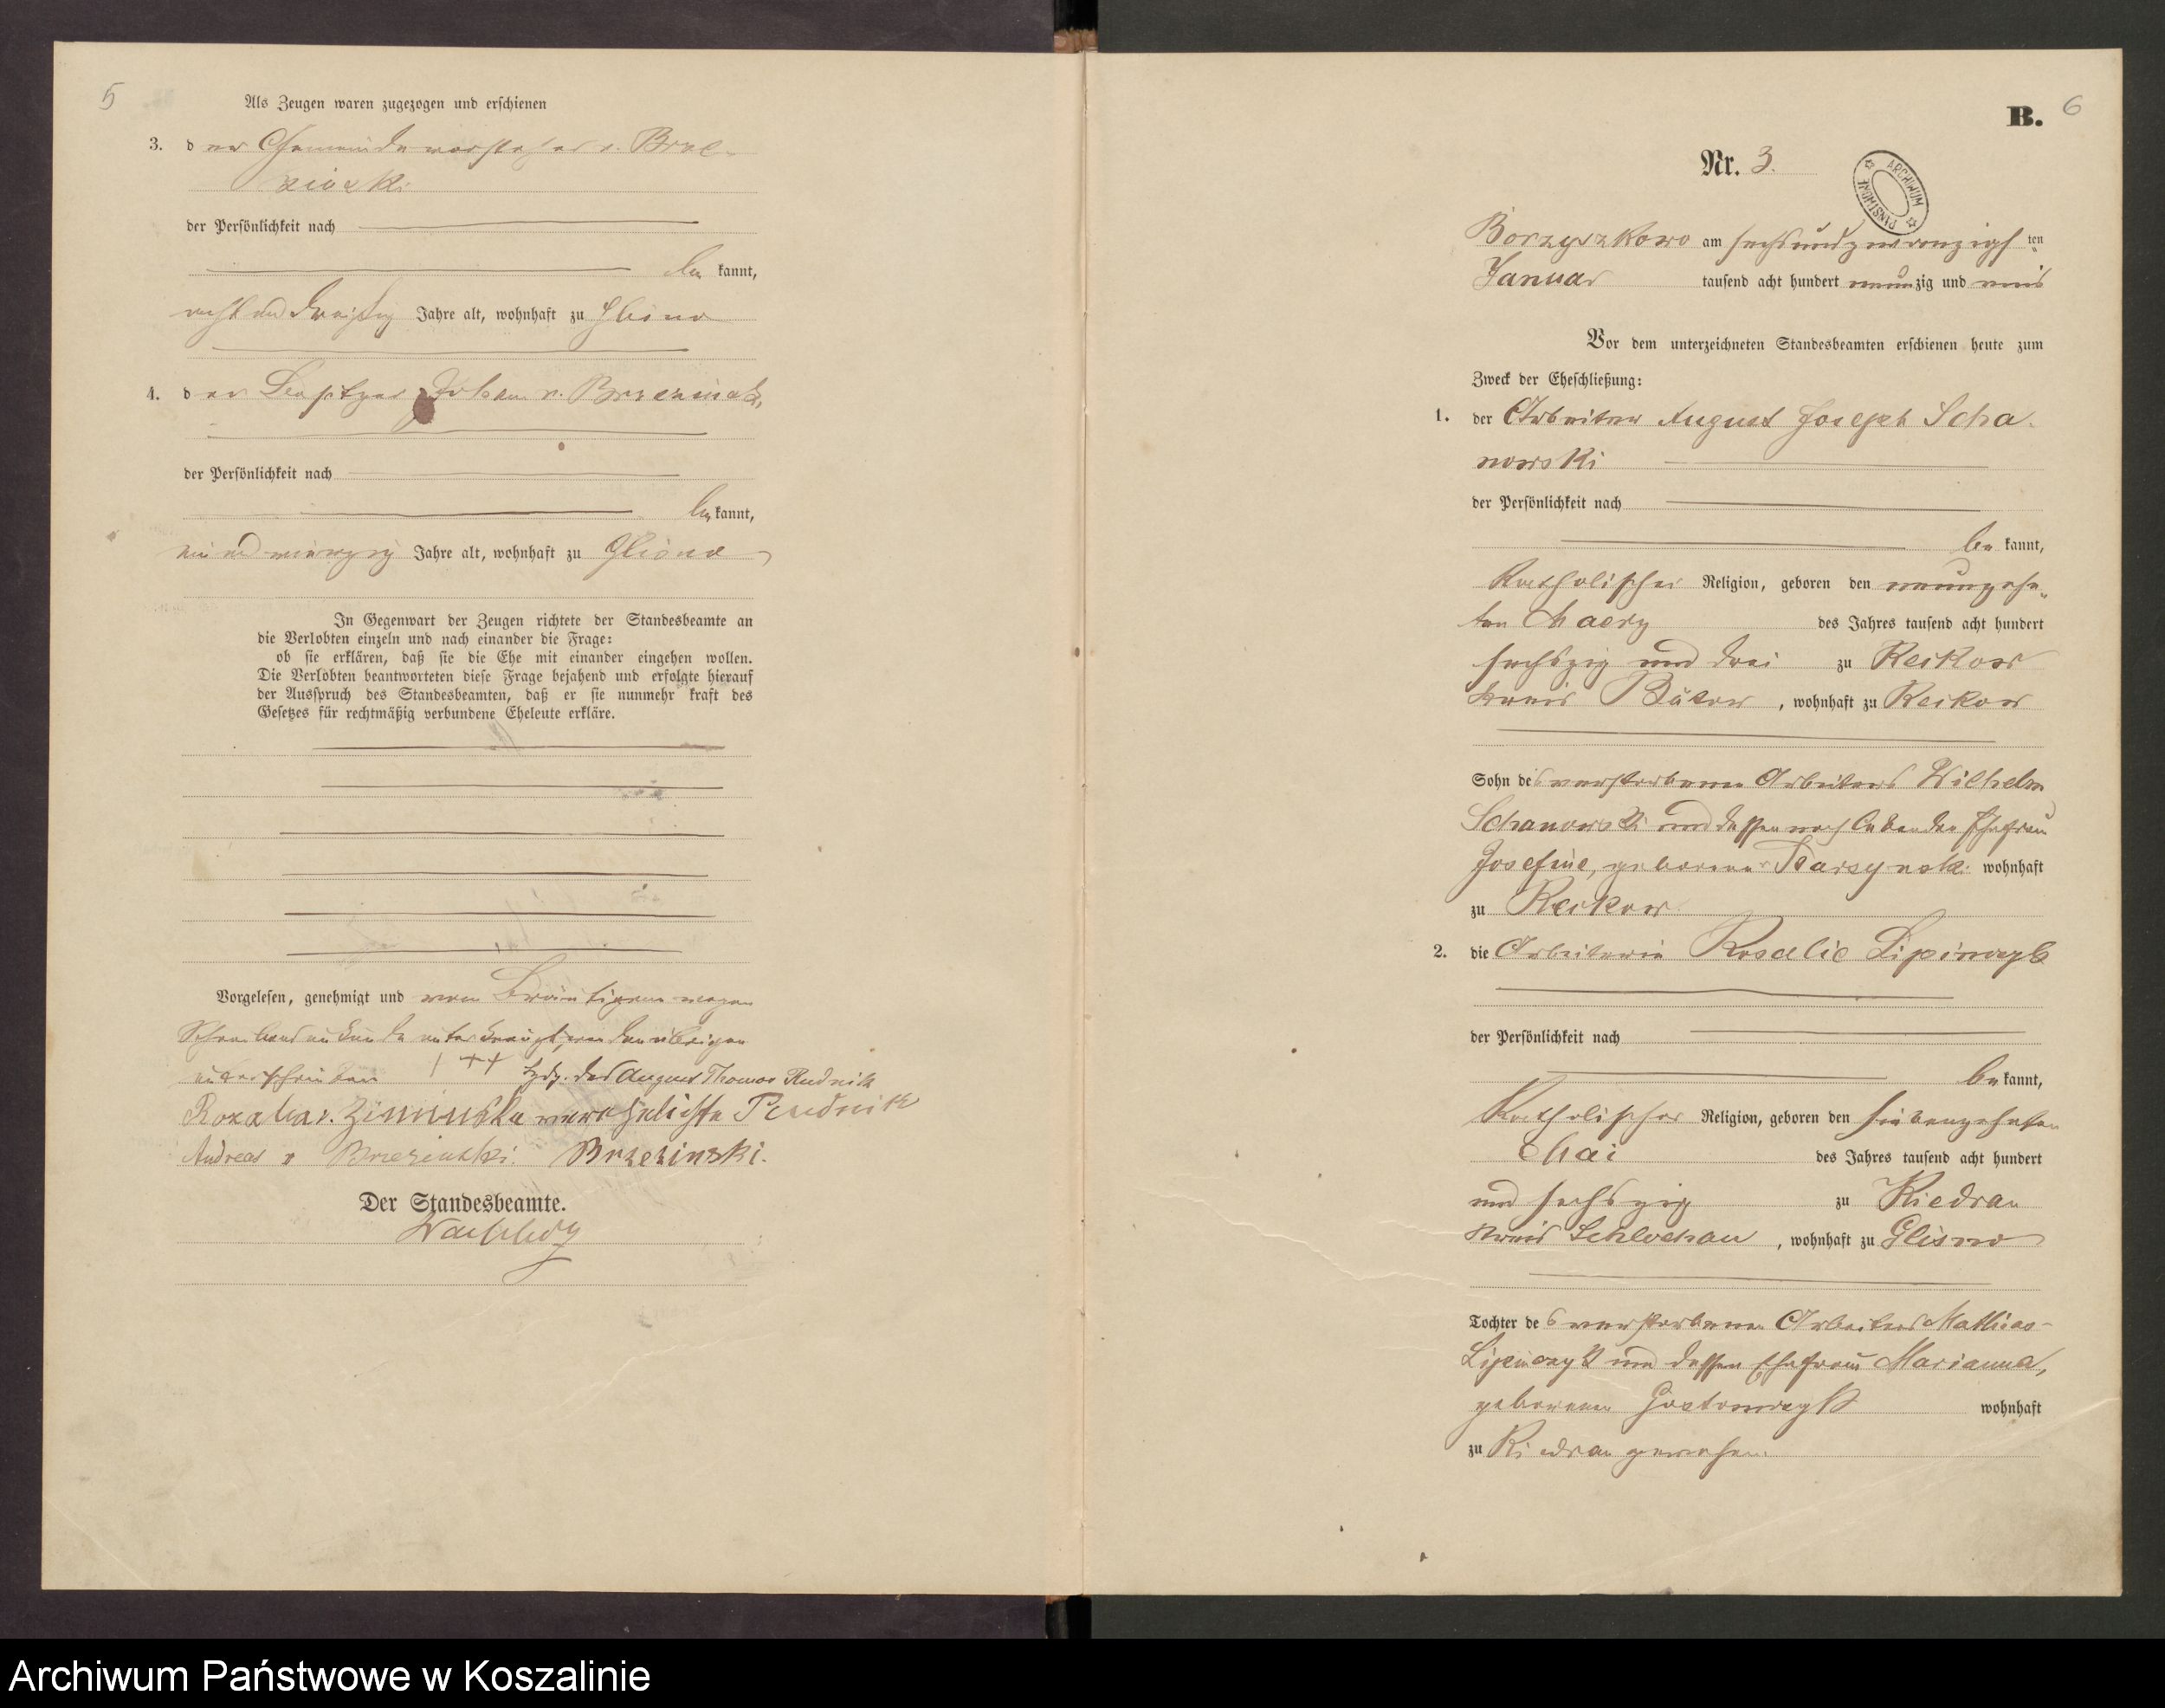 5
Als Zeugen waren zugezogen und erschienen
3. der Gemeindevorsteher v. Brze-
zinski
der Persönlichkeit nach
bekannt,
acht und dreißig Jahre alt, wohnhaft zu Glisno
4. der Besitzer Johann v. Brzezinski,
der Persönlichkeit nach
bekannt,
ein und vierzig Jahre alt, wohnhaft zu Glisno
In Gegenwart der Zeugen richtete der Standesbeamte an
die Verlobten einzeln und nach einander die Frage:
ob sie erklären, daß sie die Ehe mit einander eingehen wollen.
Die Verlobten beantworteten diese Frage bejahend und erfolgte hierauf
der Ausspruch des Standesbeamten, daß er sie nunmehr kraft des
Gesetzes für rechtmäßig verbundene Eheleute erkläre.
Vorgelesen, genehmigt und vom Bräutigam wegen
Schreibensunkunde unterkreuzt, von den übrigen
unterschrieben +++ Hdz. des August Thomas Rudnik
Rozalia v. Ziminska verehelichte Rudnik
Andreas v Brzezinski. Brzezinski.
Der Standesbeamte.
B.
6
Nr. 3.
ARCHIWUM PAŃSTWOWE
Borzyszkowo am sechsundzwanzigsten
Januar tausend acht hundert neunzig und eins
Vor dem unterzeichneten Standesbeamten erschienen heute zum
Zweck der Eheschließung:
1. der Arbeiter August Joseph Scha-
nowski
der Persönlichkeit nach
bekannt,
katholischer Religion, geboren den neunzehn-
ten Maerz des Jahres tausend acht hundert
sechszig und drei zu Reckow
Kreis Bütow, wohnhaft zu Reckow
Sohn des verstorbenen Arbeiters Wilhelm
Schanowski und dessen noch lebenden Ehefrau
Josefine, geborener wohnhaft
zu Reckow
2. die Arbeiterin Rosalie Lipinczyk
der Persönlichkeit nach
bekannt,
Katholischer Religion, geboren den siebenzehnten
Mai des Jahres tausend acht hundert
und sechszig zu Kiedrau
Kreis Schlochau, wohnhaft zu Glisno
Tochter des verstorbenen Arbeiters Mathias
Lipinczyk und dessen Ehefrau Marianna,
geborenen Gostomczyk wohnhaft
zu Kiedrau gewesen.
Archiwum Państwowe w Koszalinie